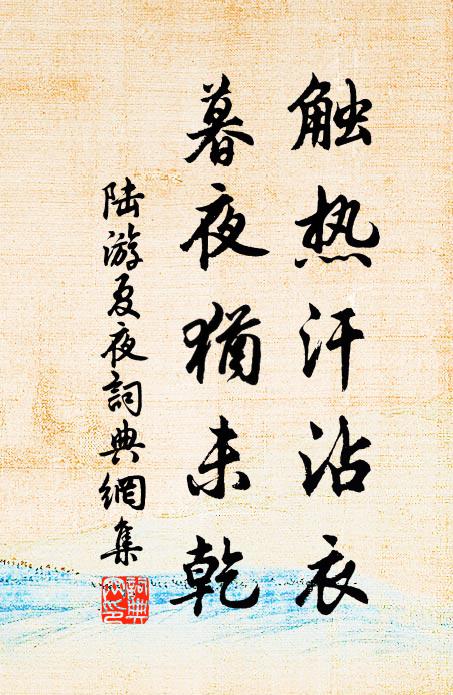 触热汗沾衣
暮夜猶未乾
陆游夏夜詞典網集